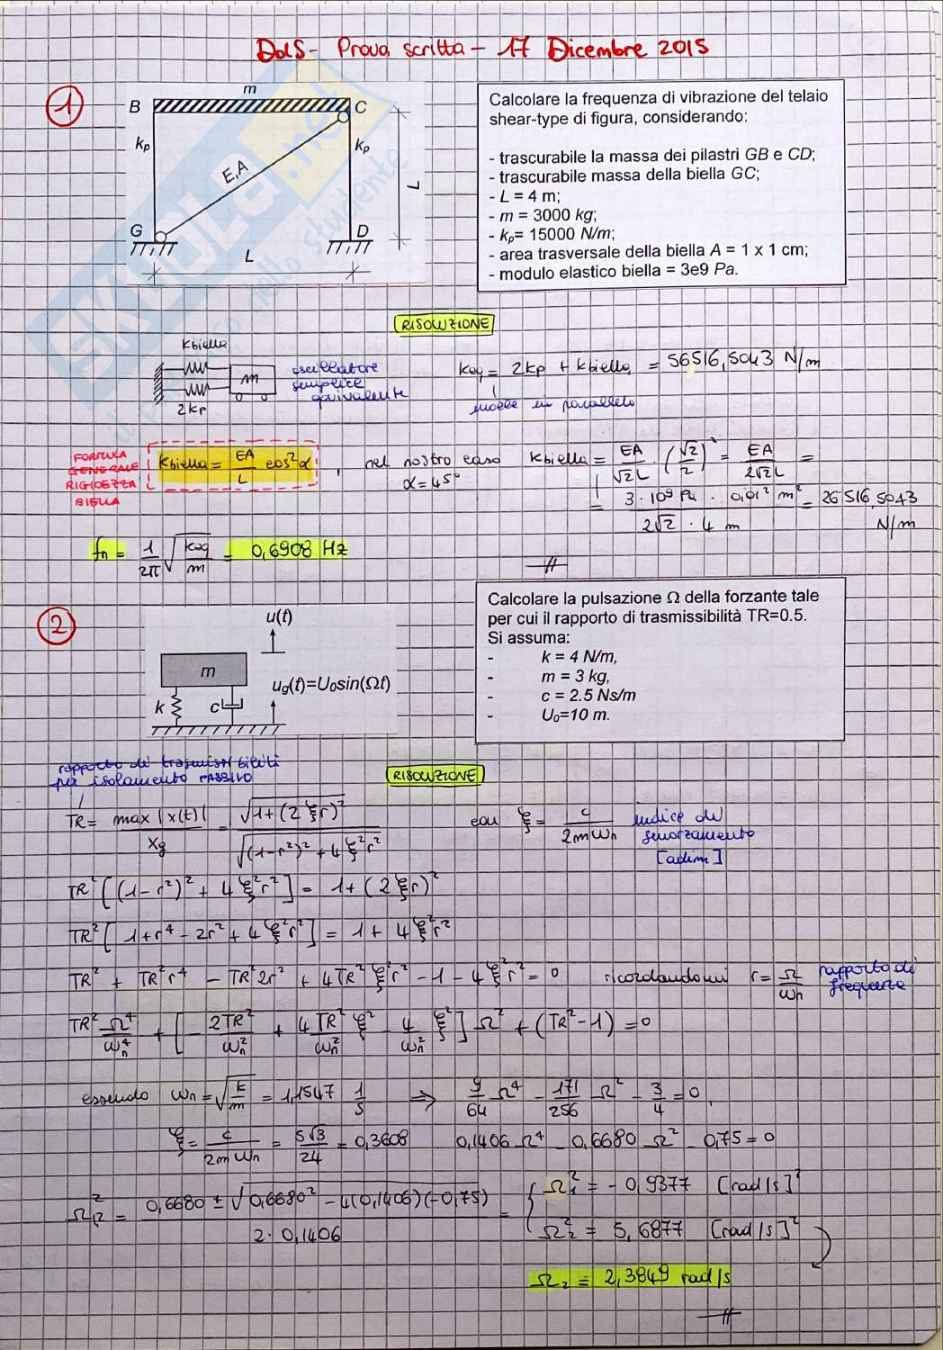 DdS - Prova scritta - 17 Dicembre 2015
1
m
B
C
kp
kp
E,A
L
G
D
L
Calcolare la frequenza di vibrazione del telaio
shear-type di figura, considerando:
- trascurabile la massa dei pilastri GB e CD;
- trascurabile massa della biella GC;
- L = 4 m;
- m = 3000 kg;
- kp= 15000 N/m;
- area trasversale della biella A = 1 x 1 cm;
- modulo elastico biella = 3e9 Pa.
RISOLUZIONE
kbiella
m
2kp
oscillatore
semplice
equivalente
keq = 2kp + kbiella = 56516,5043 N/m
molle in parallelo
FORMULA
GENERALE
RIGIDEZZA
BIELLA
kbiella = EA/L cos²α , nel nostro caso
α = 45°
kbiella = EA/√2L · (√2/2)² = EA/2√2L =
= 3·10⁹ Pa · 0,01² m² / 2√2 · 4 m = 26516,5043
N/m
fn = 1/2π √keq/m = 0,6908 Hz
2
u(t)
m
k
c
ug(t)=U0sin(Ωt)
Calcolare la pulsazione Ω della forzante tale
per cui il rapporto di trasmissibilità TR=0.5.
Si assuma:
- k = 4 N/m,
- m = 3 kg,
- c = 2.5 Ns/m
- U0=10 m.
rapporto di trasmissibilità
per isolamento PASSIVO
RISOLUZIONE
TR = max |x(t)| / xg = √1+(2ξr)² / √(1-r²)² + 4ξ²r²
con ξ = c / 2mωn
indice di
smorzamento
[adim]
TR² [(1-r²)² + 4ξ²r²] = 1+(2ξr)²
TR² [1+r⁴ - 2r² + 4ξ²r²] = 1 + 4ξ²r²
TR² + TR²r⁴ - TR²2r² + 4TR²ξ²r² - 1 - 4ξ²r² = 0 ricordandomi r = Ω/ωn rapporto di
frequenze
TR² Ω⁴/ωn⁴ + [- 2TR²/ωn² + 4TR²/ωn² ξ² - 4/ωn² ξ²] Ω² + (TR²-1) = 0
essendo ωn = √k/m = 1,1547 1/s ⇒ 9/64 Ω⁴ - 171/256 Ω² - 3/4 = 0
ξ = c/2mωn = 5√3/24 = 0,3608 0,1406 Ω⁴ - 0,6680 Ω² - 0,75 = 0
Ω²1,2 = 0,6680 ± √0,6680² - 4(0,1406)(-0,75) / 2·0,1406 =
Ω1² = - 0,9377 [rad/s]²
Ω2² = 5,6877 [rad/s]²
Ω2 = 2,3849 rad/s